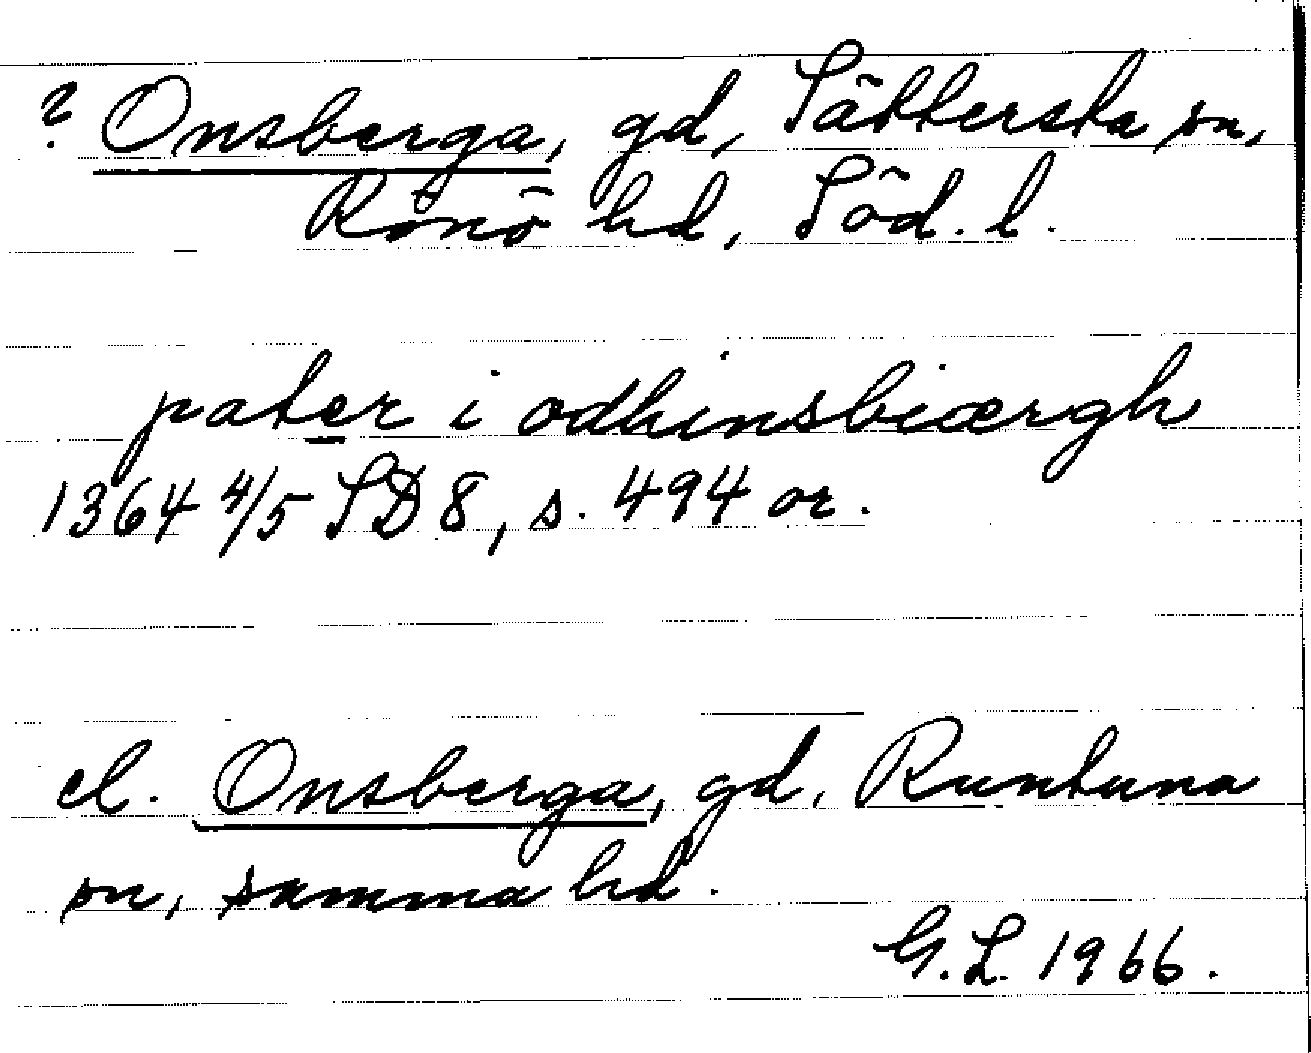 ? Onsberga, gd, Sättersta sn,
Rönö hd, Söd. l.
pater i odhinsbiærgh
1364 4/5 SD 8, s. 494 or.
el. Onsberga, gd, Runtuna
sn, samma hd.
G.L. 1966.